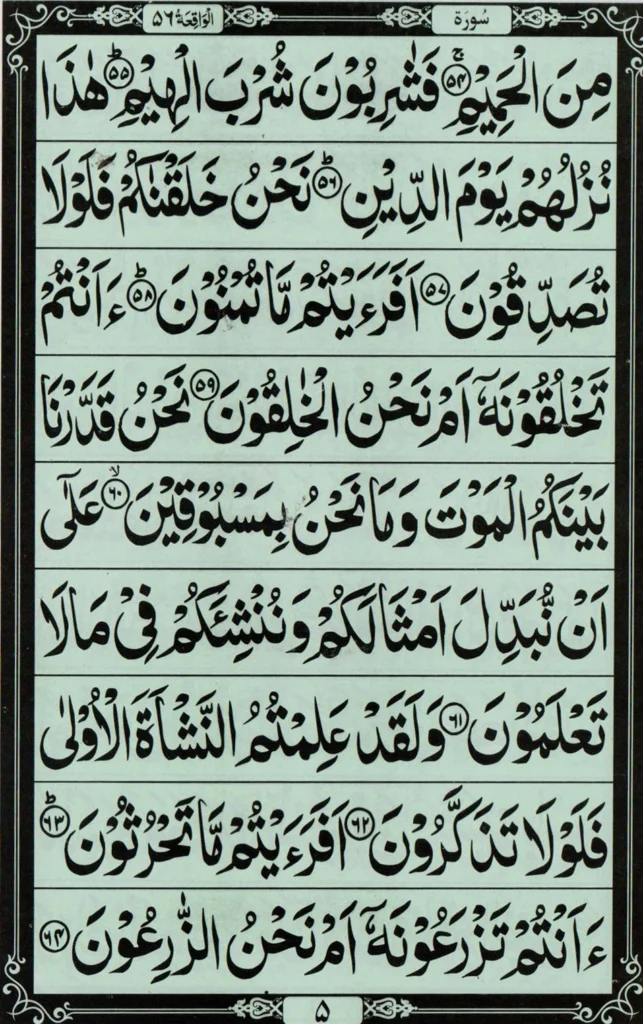 سُورَة الوَاقِعَة ٥٦
مِنَ الْحَمِيْمِ ۚ﴿۵۴﴾ فَشٰرِبُوْنَ شُرْبَ الْهِيْمِ ؕ﴿۵۵﴾ هٰذَا
نُزُلُهُمْ يَوْمَ الدِّيْنِ ؕ﴿۵۶﴾ نَحْنُ خَلَقْنٰكُمْ فَلَوْلَا
تُصَدِّقُوْنَ ﴿۵۷﴾ اَفَرَءَيْتُمْ مَّا تُمْنُوْنَ ؕ﴿۵۸﴾ ءَاَنْتُمْ
تَخْلُقُوْنَهٗۤ اَمْ نَحْنُ الْخٰلِقُوْنَ ﴿۵۹﴾ نَحْنُ قَدَّرْنَا
بَيْنَكُمُ الْمَوْتَ وَمَا نَحْنُ بِمَسْبُوْقِيْنَ ۙ﴿۶۰﴾ عَلٰۤى
اَنْ نُّبَدِّلَ اَمْثَالَكُمْ وَنُنْشِئَكُمْ فِىْ مَا لَا
تَعْلَمُوْنَ ﴿۶۱﴾ وَلَقَدْ عَلِمْتُمُ النَّشْاَةَ الْاُوْلٰى
فَلَوْلَا تَذَكَّرُوْنَ ﴿۶۲﴾ اَفَرَءَيْتُمْ مَّا تَحْرُثُوْنَ ؕ﴿۶۳﴾
ءَاَنْتُمْ تَزْرَعُوْنَهٗۤ اَمْ نَحْنُ الزّٰرِعُوْنَ ﴿۶۴﴾
۵